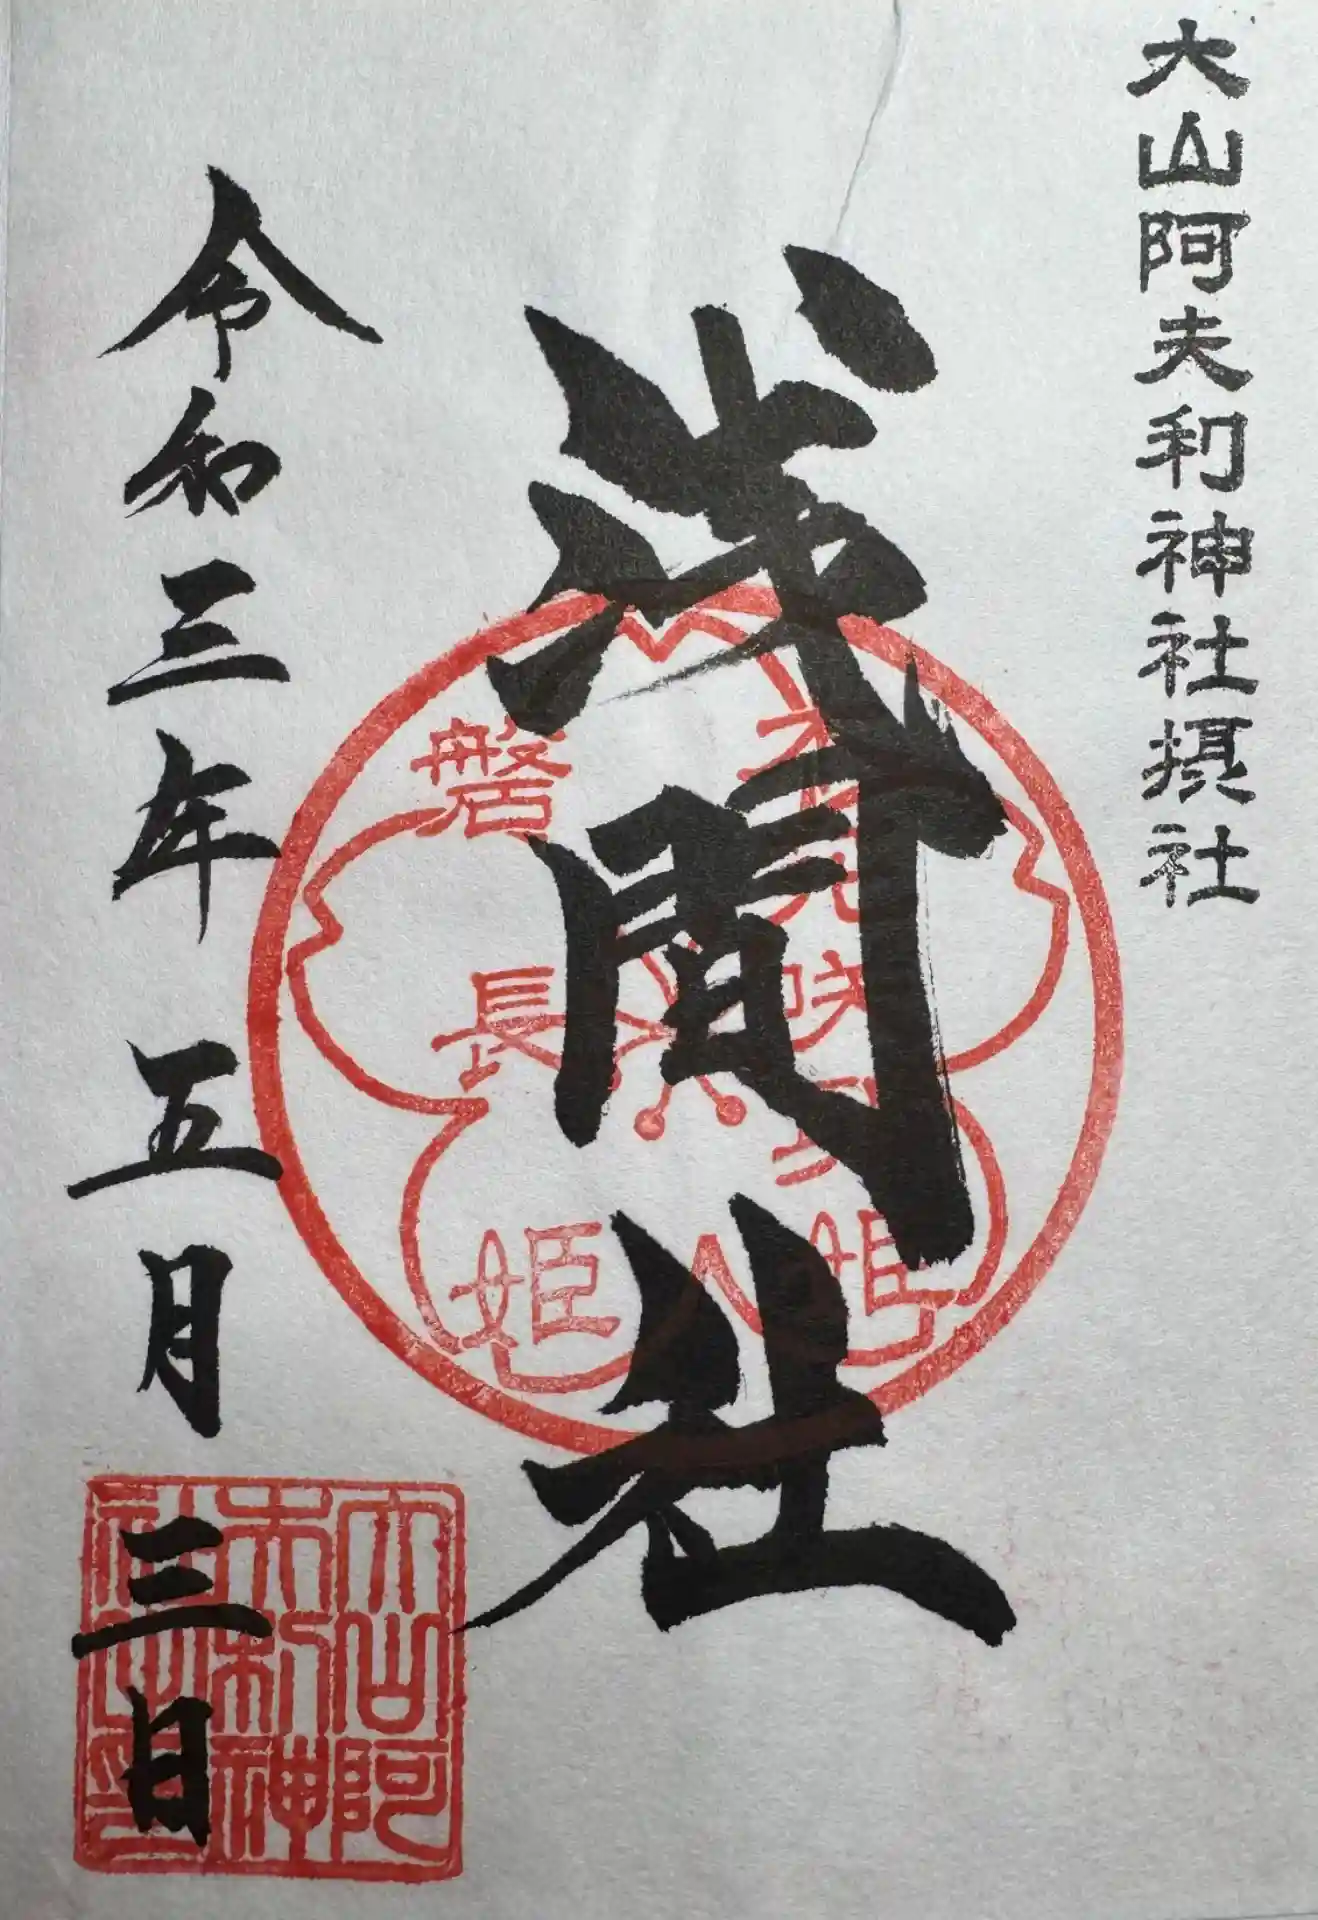 大山阿夫利神社摂社
浅間社
木花咲耶姫
磐長姫
令和三年五月三日
大山阿
夫利神
社之印